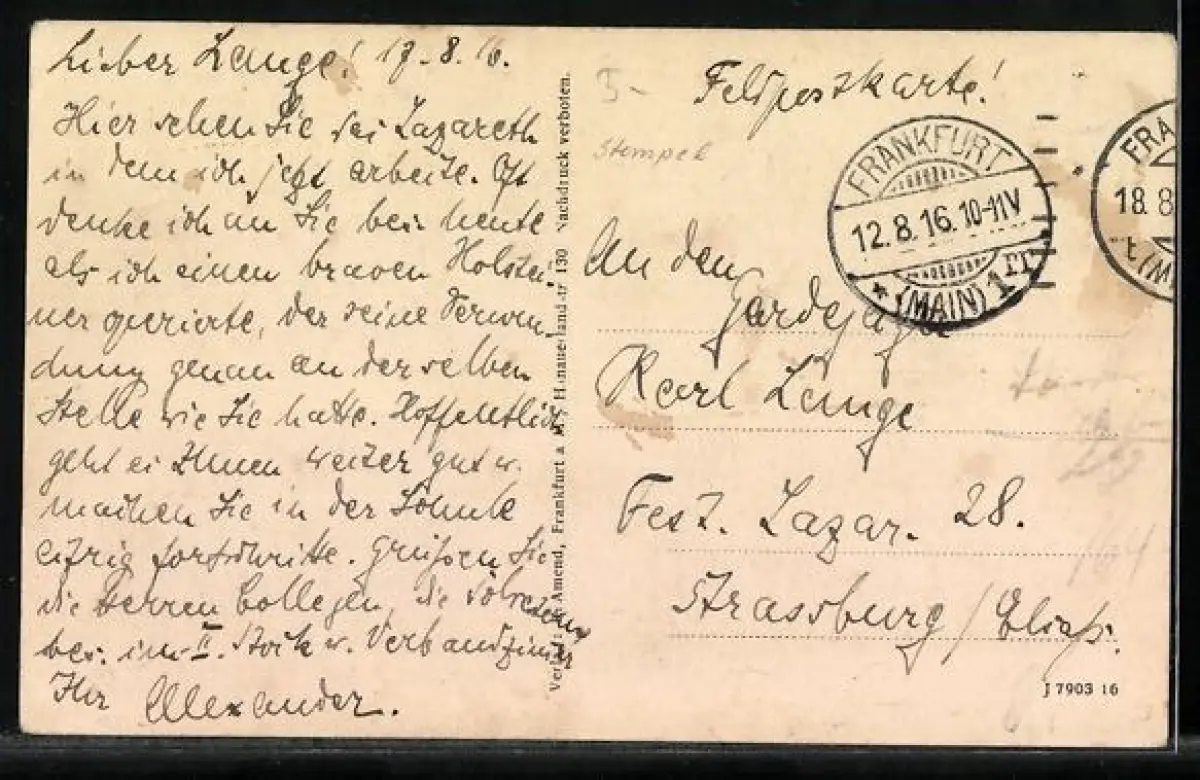 Lieber Lange! 17.8.16.
Hier sehen Sie das Lazareth
in dem ich jetzt arbeite. Oft
denke ich an Sie bes. heute
als ich einen braven Holstei-
ner operierte, der seine Verwun-
dung genau an derselben
Stelle wie Sie hatte. Hoffentlich
geht es Ihnen weiter gut u.
machen Sie in der Schule
eifrig fortschritte. Grüßen Sie
die Herren Collegen, die Schwestern
bes. im II. Stock u. Verbandzimmer
Ihr Alexander.
Amend, Frankfurt a. M., Hanauerlandstr 130 Nachdruck verboten.
5-
Stempel
Feldpostkarte!
FRANKFURT
12.8.16.10-11V
(MAIN) 1
FRA
18.8
(M
An den
Gardejäger
Karl Lange
Fest. Lazar. 28.
Strassburg / Elsaß.
J 7903 16